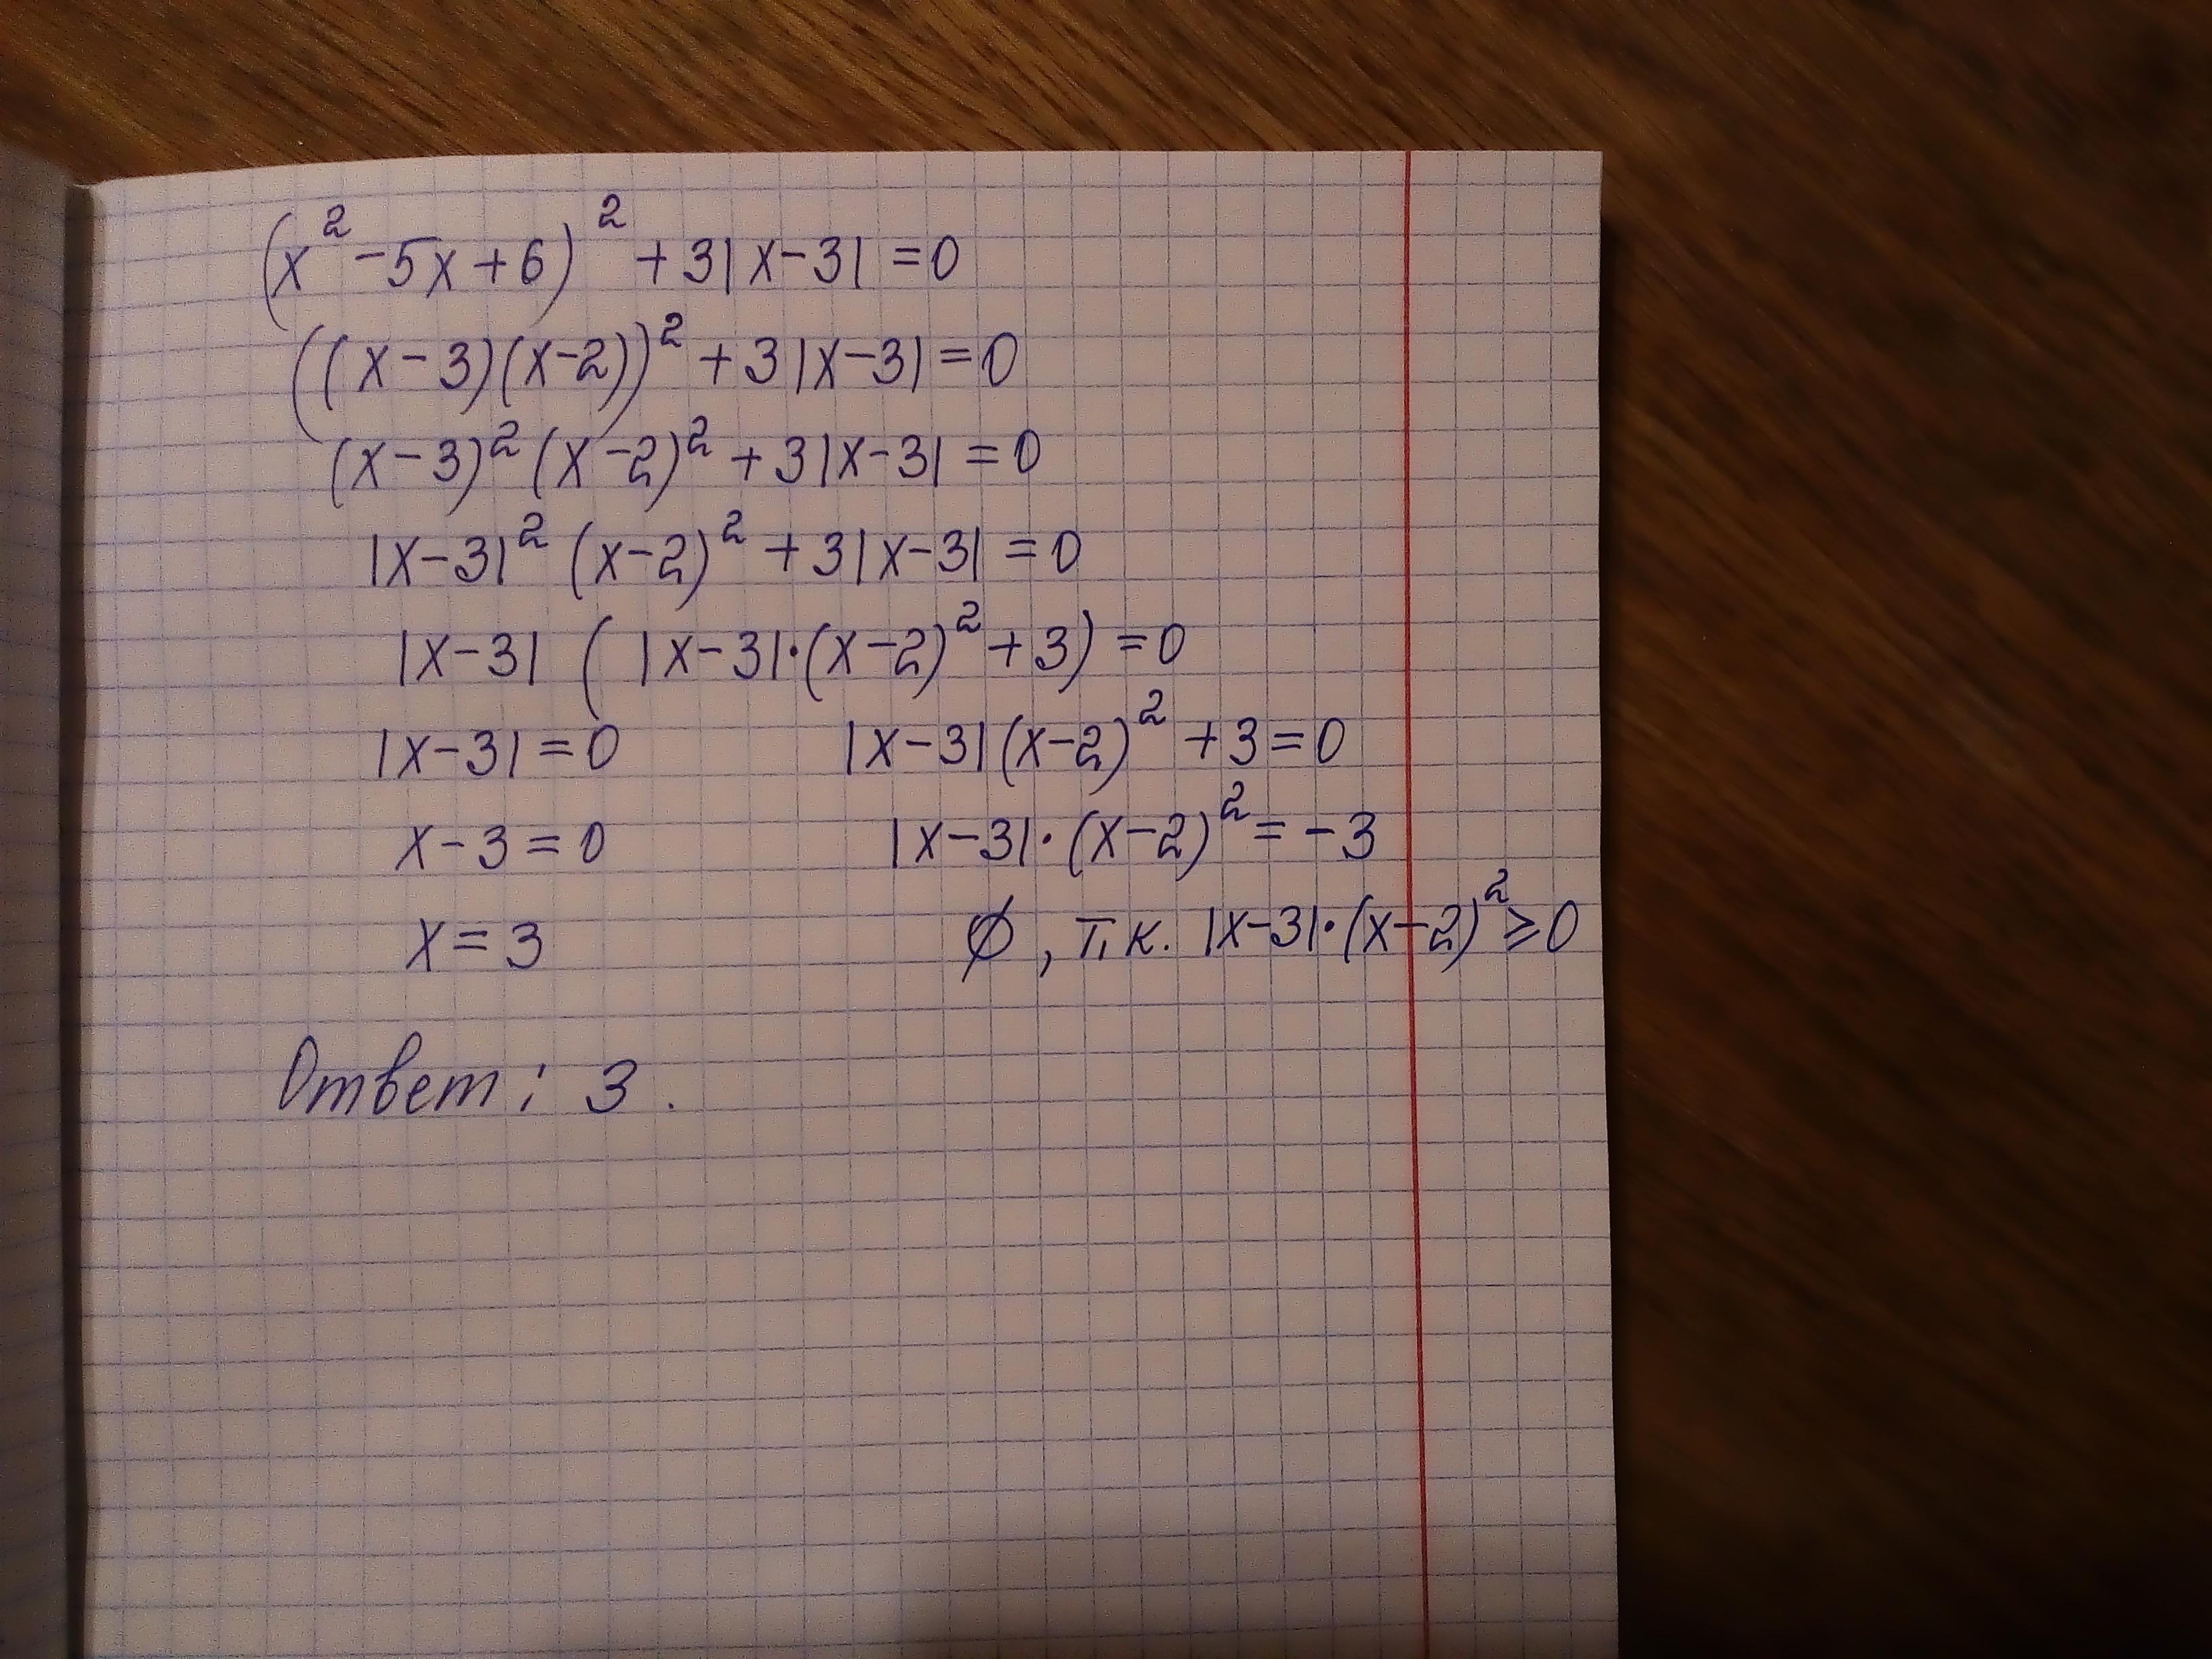 (x² - 5x + 6)² + 3|x - 3| = 0
((x - 3)(x - 2))² + 3|x - 3| = 0
(x - 3)² (x - 2)² + 3|x - 3| = 0
|x - 3|² (x - 2)² + 3|x - 3| = 0
|x - 3| ( |x - 3|·(x - 2)² + 3) = 0
|x - 3| = 0 |x - 3|(x - 2)² + 3 = 0
x - 3 = 0 |x - 3|·(x - 2)² = -3
x = 3 ∅, т.к. |x - 3|·(x - 2)² ≥ 0
Ответ: 3.